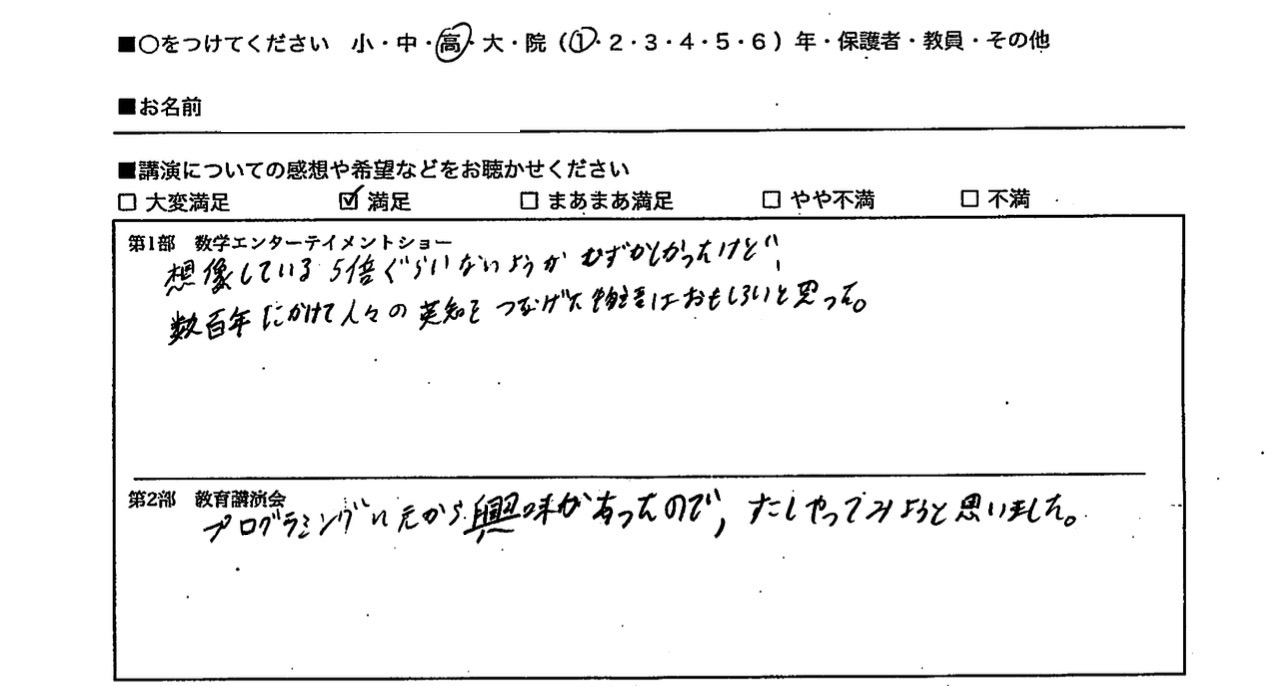 ■○をつけてください 小・中・高・大・院（1・2・3・4・5・6）年・保護者・教員・その他
■お名前
■講演についての感想や希望などをお聴かせください
□ 大変満足 ☑ 満足 □ まあまあ満足 □ やや不満 □ 不満
第1部 数学エンターテイメントショー
想像している5倍ぐらいないようが むずかしかったけど、
数百年にかけて人々の英知をつなげた物語はおもしろいと思った。
第2部 教育講演会
プログラミングに元から興味があったので、たしやってみようと思いました。